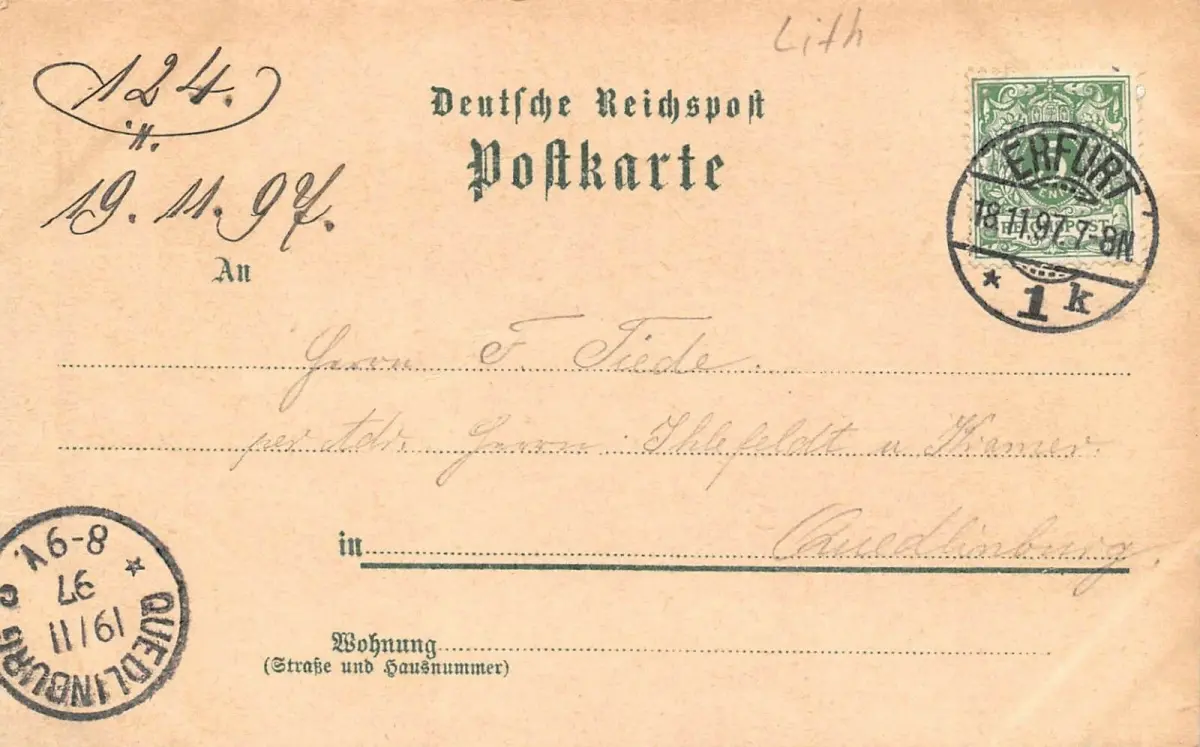 Lith
124.
19. 11. 97.
Deutsche Reichspost
Postkarte
ERFURT
18.11.97.7-8N
REICHSPOST
* 1 k
An
Herrn F. Tiede.
per Adr. Herrn Ihlefeldt u Kramer.
in Quedlinburg.
Wohnung
(Straße und Hausnummer)
QUEDLINBURG
19/11
97
8-9V.
* c